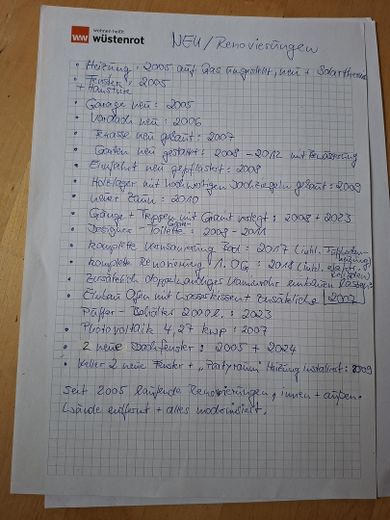 wohnen heißt
wüstenrot
NEU / Renovierungen
• Heizung: 2005 auf Gas umgestellt, neu + Solartherme
• Fenster: 2005
+ Haustüre
• Garage neu: 2005
• Vordach neu: 2006
• Terasse neu gebaut: 2007
• Garten neu gestaltet: 2008 - 2012 mit Bewässerung
• Einfahrt neu gepflastert: 2008
• Holzlager mit hochwertigen Dachziegeln gebaut: 2009
• neuer Zaun: 2010
• Gänge + Treppen mit Granit verlegt: 2008 + 2023
• Designer - Gäste- Toilette: 2009 - 2011
• komplette Renovierung Bad: 2017 (inkl. Fußboden-
heizung)
• komplette Renovierung 1. OG: 2018 (inkl. elektr.
• Zusätzlich doppelwandiges Kaminrohr einbauen lassen:
• Einbau Ofen mit Wasserkissen + zusätzliche 2007
Puffer - Behälter 2000 l: 2023
• Photovoltaik 4,27 kwp: 2007
• 2 neue Dachfenster: 2005 + 2024
• Keller 2 neue Fenster + "Partyraum" Heizung installiert: 2009
Seit 2005 laufende Renovierungen, innen + außen.
Wände entfernt + alles modernisiert.